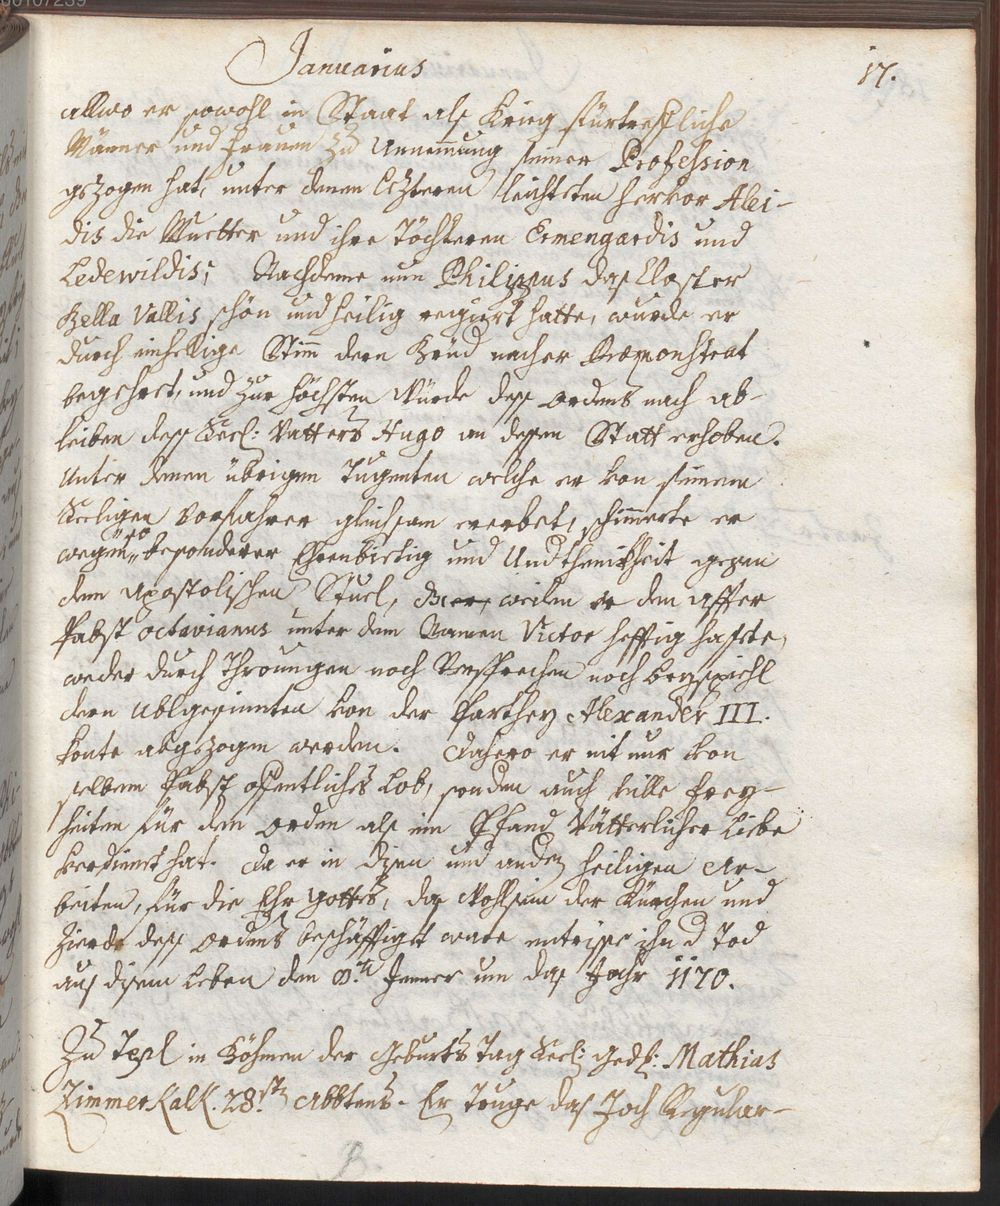 Januarius 17.
allwo er sowohl in Staat als Krieg fürtreffliche
Männer und Frauen zu Annemmung seiner Profession
gezogen hat, unter denen letzteren leichteten hervor Alei-
dis die Muetter und ihre Töchteren Ermengardis und
Ledewildis; Nachdeme nun Philippus das Closter
Bella Vallis schön und heilig regiert hatte, wurde er
durch einhellige Stim dern Brüd nacher Præmonstrat
begehrt, und zur höchsten Würde dess Ordens nach ab-
leiben dess Seel: Vatters Hugo an dessen Statt erhoben.
Unter denen übrigen Tugenten welche er von seinem
Seeligen Vorfahrer gleichsam ererbet, schimmerte er
wegen besonderer Ehrenbietig und Undthenikheit gegen
dem Apostolischen Stuel, weilen er dem affter
Pabst Octavianus unter dem Namen Victor hefftig hassete,
weder durch Throungen noch Versprechen noch beyspiehl
dern Ublgesinnten von der Parthey Alexander III.
konte abgezogen werden. Dahero er nit nur von
selbem Pabst offentliches Lob, sonden auch ville Frey-
heiten für den Orden als ein Pfand Vätterlicher Liebe
verdienet hat. Da er in disen und anden heiligen Ar-
beiten, für die Ehr Gottes, das Wohlsein der Kürchen und
Zierde dess Ordens beschäfftiget ware entrisse ihn d Tod
aus disem Leben den Jenner um das Jahr 1170.
Zu Tepl in Böhmen der Geburts Tag Seel: Ged: Mathias
Zimmer 28.sten Abbtens. Er truge das Joch Regular-